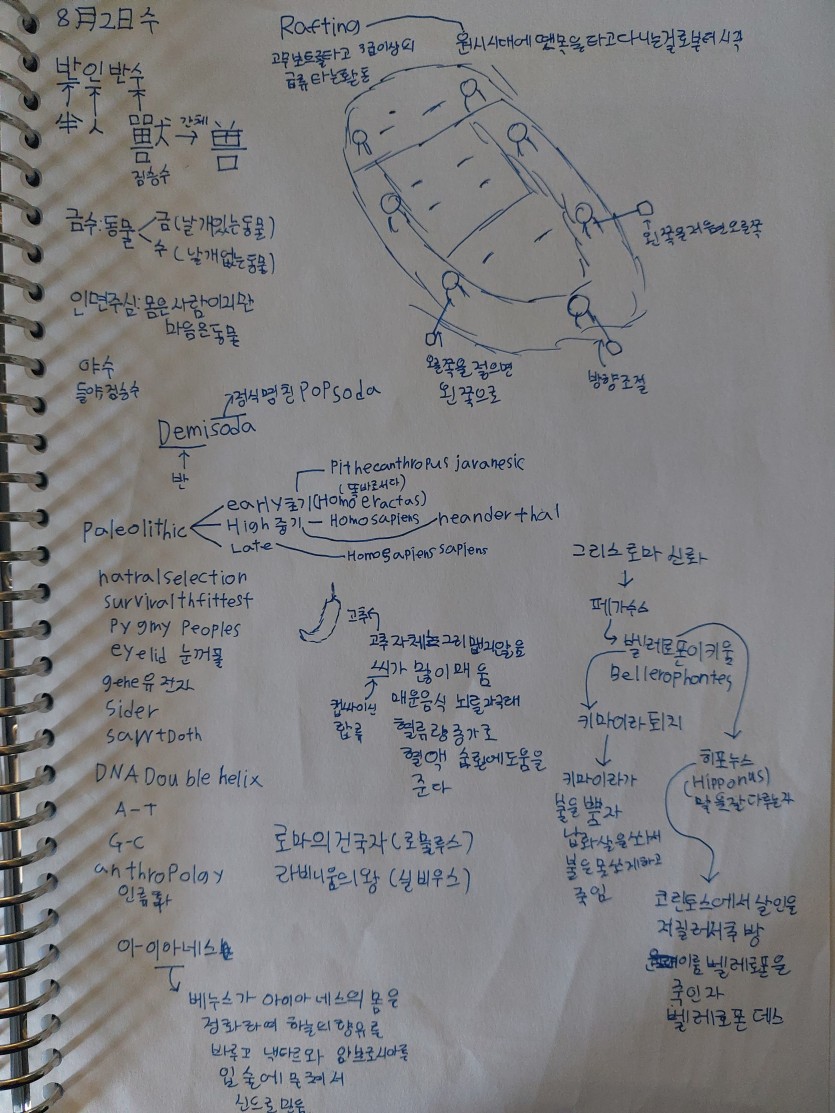 8月2日수
Rafting
원시시대에 뗏목을 타고 다니는걸로부터 시작
고무보트를타고 3급이상의
급류 타는활동
반인반수
半人 獸 간체 → 兽
짐승수
금수:동물
금 (날개있는동물)
수 (날개없는동물)
인면수심:몸은사람이지만
마음은동물
야수
들야짐승수
왼쪽을저으면오른쪽
왼쪽을 젊으면
왼쪽으로
방향조절
정식명칭 POPsoda
Demisoda
반
Pithecanthropus javanesic
(똑바로서다)
Paleolithic
early초기(Homo eractas)
High중기 - Homosapiens neanderthal
Late Homosapiens sapiens
natralselection
survivalthfittest
Pygmy Peoples
eyelid 눈꺼풀
gene유전자
Sider
sawtDoth
DNA Double helix
A-T
G-C
anthropolgy
인류학
고추
고추자체는그리맵지않음
씨가 많이매움
캡싸이신
합류
매운음식 뇌를자극해
혈류량증가로
혈액 순환에도움을
준다
로마의건국자(로물루스)
라비니움의왕 (실비우스)
아이아네스
베누스가 아이아네스의 몸을
정화하여 하늘의향유를
바루고 넥타르와 암브로시아를
입술에 묻혀서
신으로만듬
그리스로마 신화
페가수스
벨레로폰이키울
Bellerophontes
키마이라퇴치
키마이라가
불을뿜자
납화살을쏘아서
불을못쏘게하고
죽임
히포누스
(Hipponus)
말을잘다루는자
코린토스에서살인을
저질러서추방
이룸 벨레로폰을
죽인자
벨레로폰데스